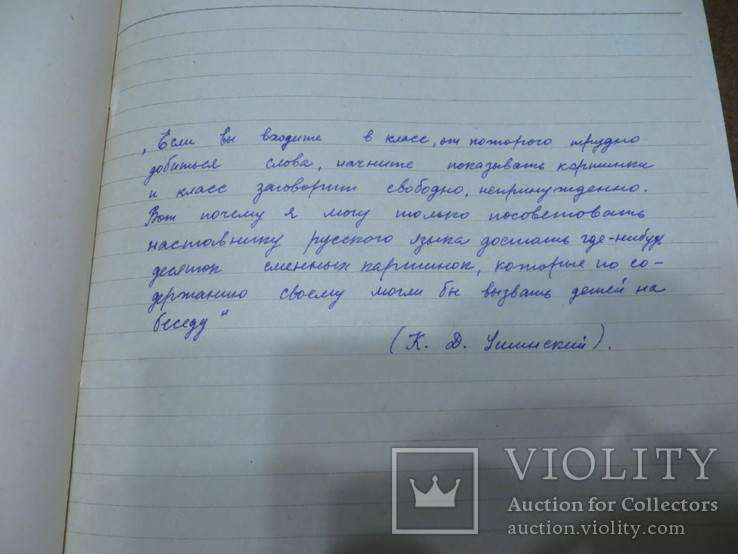 „Если вы входите в класс, от которого трудно
добиться слова, начните показывать картинки
и класс заговорит свободно, непринужденно.
Вот почему я могу только посоветовать
наставнику русского языка достать где-нибудь
десяток сменных картинок, которые по со-
держанию своему могли бы вызвать детей на
беседу"
(К. Д. Ушинский).
VIOLITY
Auction for Collectors
auction.violity.com